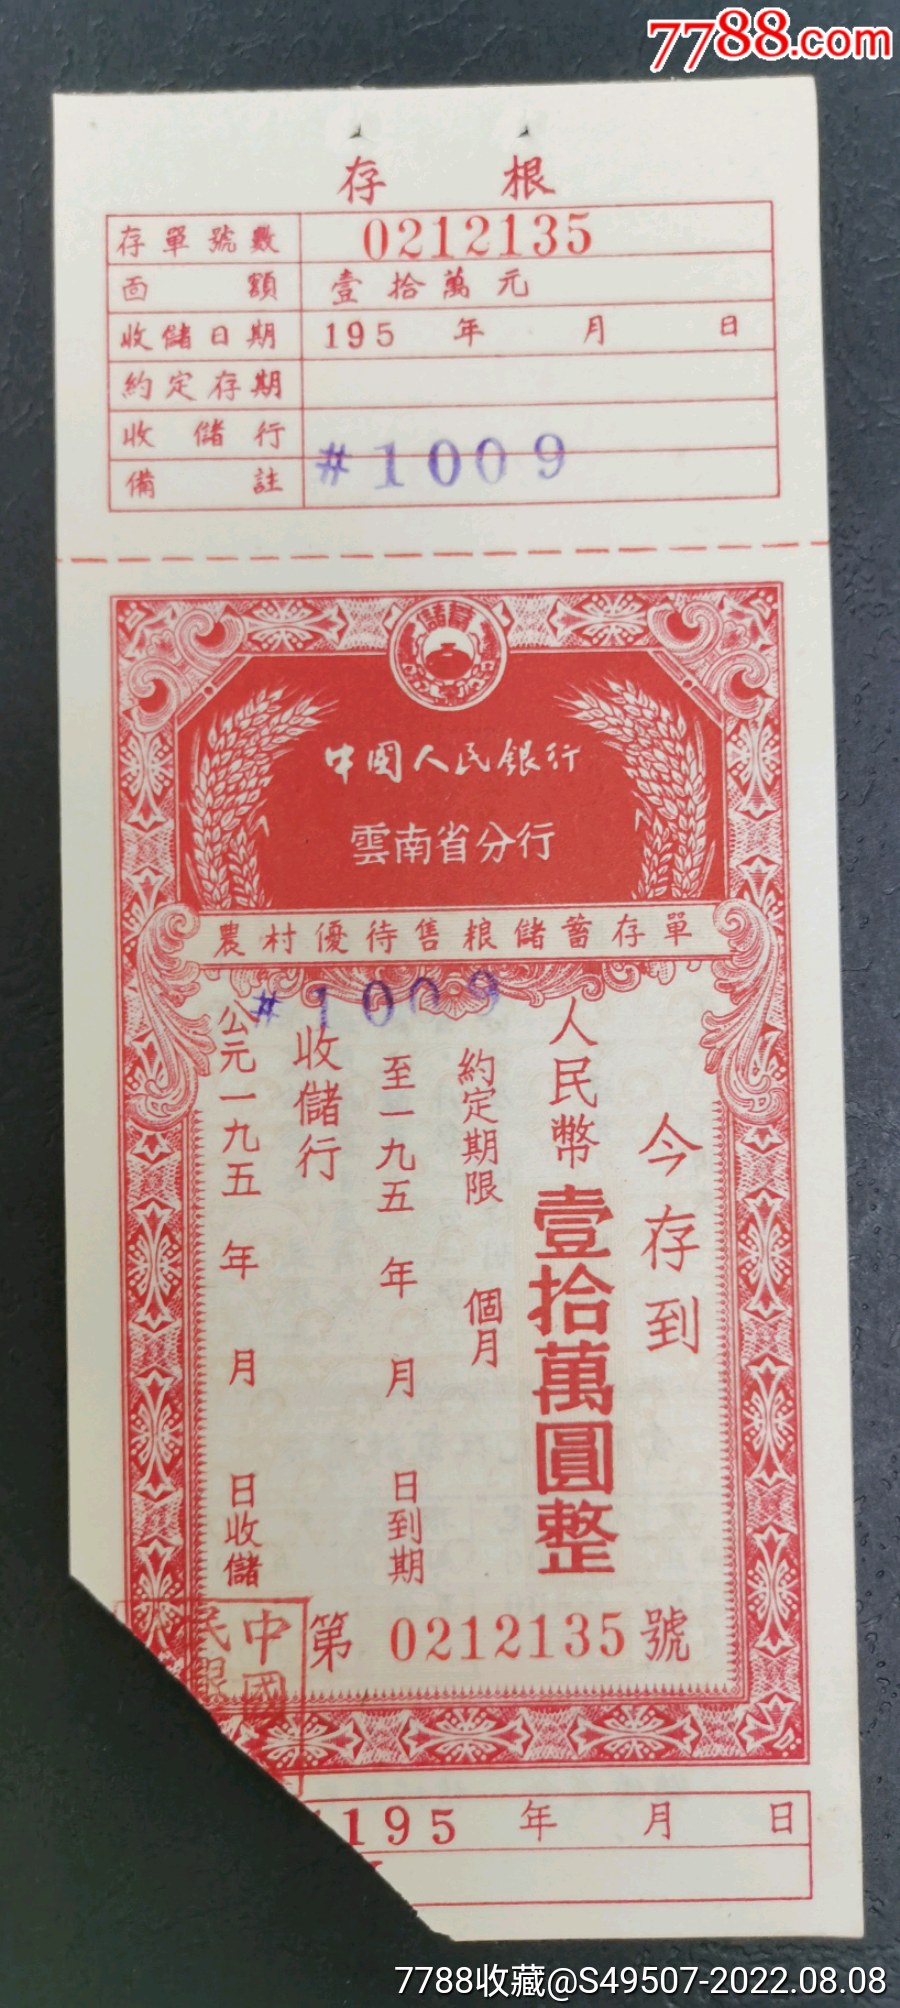 7788.com
存 根
存單號數 0212135
面額 壹拾萬元
收儲日期 195 年 月 日
約定存期
收儲行
備註 #1009
中國人民銀行
雲南省分行
農村優待售粮儲蓄存單
#1009
今存到
人民幣壹拾萬圓整
約定期限 個月
至一九五 年 月 日到期
收儲行
公元一九五 年 月 日收儲
第 0212135 號
中國
民銀
195 年 月 日
7788收藏@S49507-2022.08.08